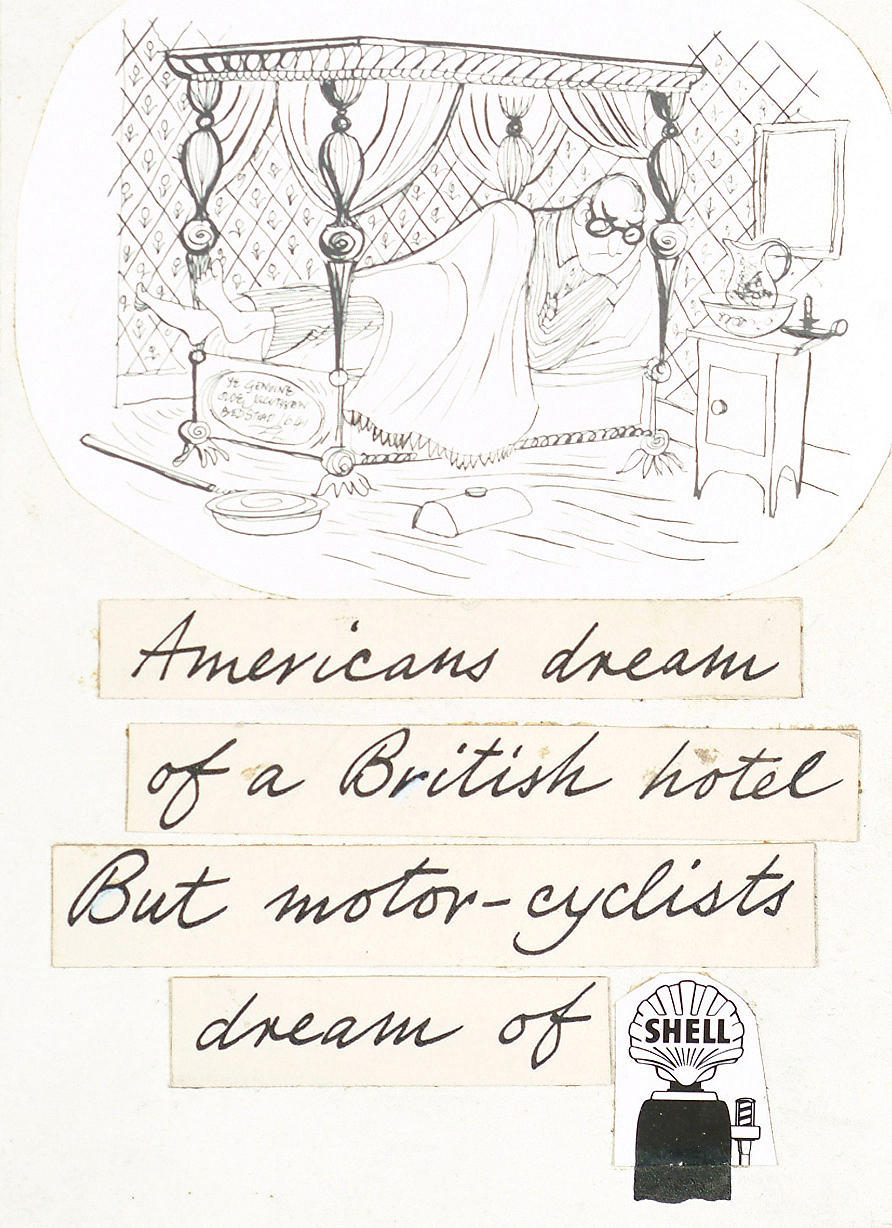 YE GENUINE
OLDE JACOBEAN
BEDSTEAD 1641
Americans dream
of a British hotel
But motor-cyclists
dream of
SHELL